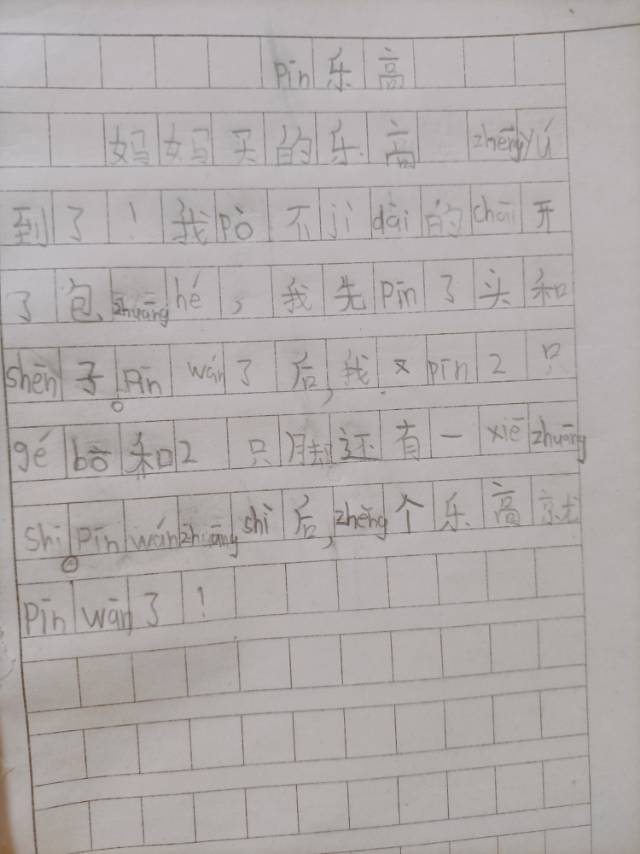 pīn乐高
妈妈买的乐高 zhēngyú
到了！我pò不jí dài的chāi开
了包zhuāng hé，我先pīn了头和
shēn子。pīn wán了后，我又pīn 2只
gé bō和2只脚还有一xiē zhuāng
shì。pīn wán zhuāng shì后，zhěng个乐高就
pīn wān了！